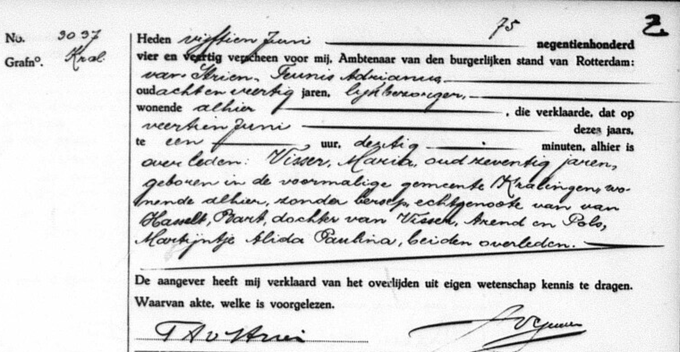 75 2.
No. 3037 Heden vijftien Juni negentienhonderd
Grafno. Kral. vier en veertig verscheen voor mij, Ambtenaar van den burgerlijken stand van Rotterdam:
van Strien, Teunis Adrianus,
oud achten veertig jaren, lijkbezorger,
wonende alhier , die verklaarde, dat op
veertien Juni dezes jaars,
te een uur, dertig minuten, alhier is
overleden: Visser, Maria, oud zeventig jaren,
geboren in de voormalige gemeente Kralingen, wo-
nende alhier, zonder beroep, echtgenoote van van
Hasselt, Bart, dochter van Visser, Arend en Pols,
Martijntje Alida Paulina, beiden overleden.
De aangever heeft mij verklaard van het overlijden uit eigen wetenschap kennis te dragen.
Waarvan akte, welke is voorgelezen.
T A v Strien